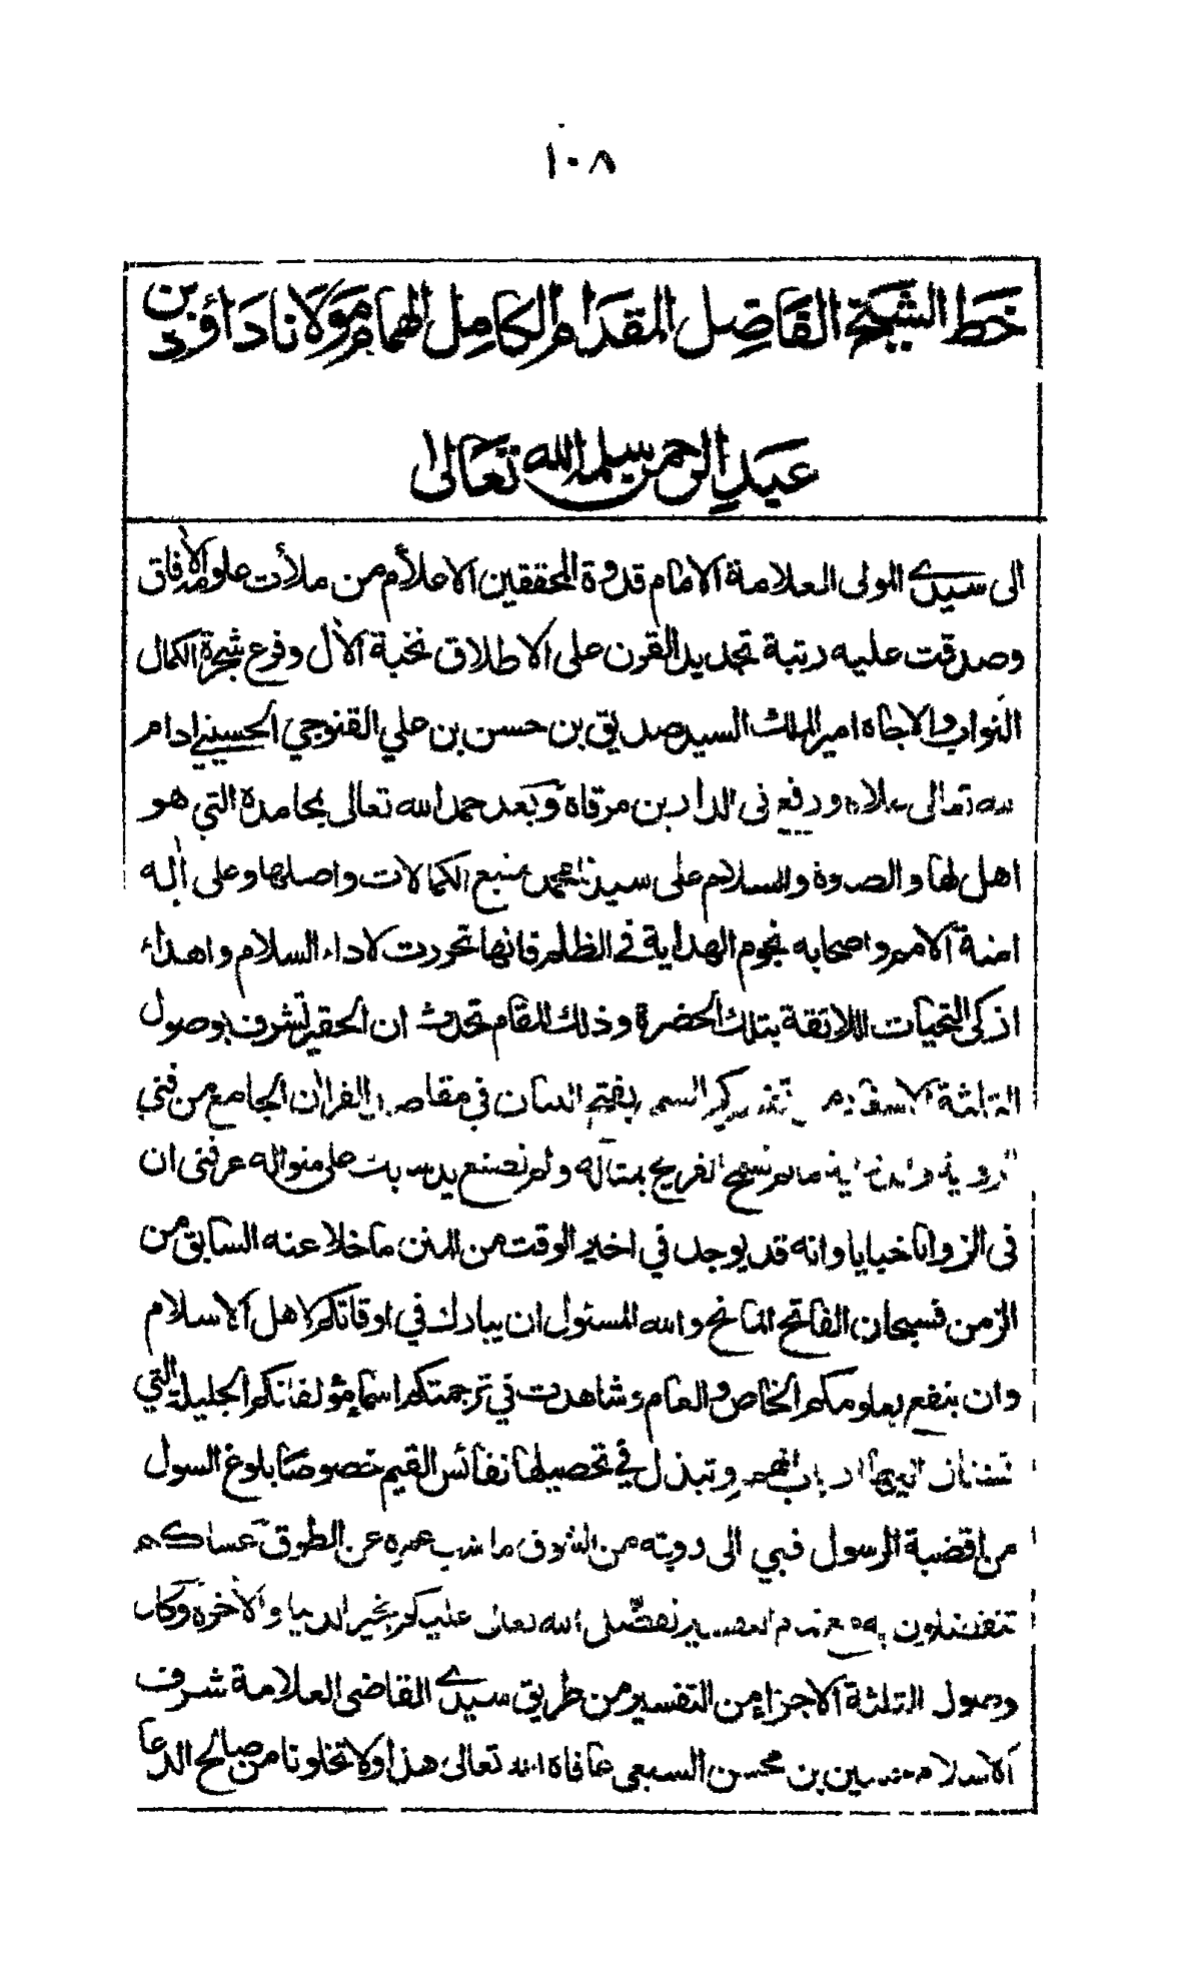 ١٠٨
خط الشيخ الفاضل المقدام الكامل الهمام مولانا داؤد بن
عبد الرحمن سلمه الله تعالى
الى سيدي المولى العلامة الامام قدوة المحققين الاعلام من ملأت علومه الآفاق
وصدقت عليه رتبة تجديد القرن على الاطلاق نخبة الآل وفرع شجرة الكمال
النواب والاجاه امير الملك السيد صديق بن حسن بن علي القنوجي الحسيني ادام
الله تعالى علاه ورفع فى الدارين مرقاه وبعد حمد الله تعالى بمحامده التي هو
اهل لها والصلوة والسلام على سيدنا محمد منبع الكمالات واصلها وعلى آله
امنة الامم واصحابه نجوم الهداية في الظلم فانها تحررت لاداء السلام واهداء
ازكى التحيات اللائقة بتلك الحضرة وذلك المقام تحدث ان الحقير تشرف بوصول
الثلثة من تفسيركم السمى بفتح البيان في مقاصد القرآن الجامع من فني
ما لم تسمح القريح بمثاله ولم تصنع يد على منواله عرفنى ان
فى الزوايا خبايا وانه قد يوجد في اخير الوقت من المنن ما خلا عنه السابق من
الزمن فسبحان الفاتح المانح والله المسئول ان يبارك في اوقاتكم لاهل الاسلام
وان ينفع بعلومكم الخاص والعام وشاهدت في ترجمتكم اسماء مؤلفاتكم الجليلة التي
اليها ارباب الهمم وتبذل في تحصيلها نفائس القيم خصوصا بلوغ السول
من اقضية الرسول فبي الى رويته من الشوق ما شب عمره عن الطوق عساكم
تتفضلون به تفضل الله تعالى عليكم بخير الدنيا والآخرة وكان
وصول الثلثة الاجزاء من التفسير من طريق سيدي القاضى العلامة شرف
الاسلام حسين بن محسن السبعى عافاه الله تعالى هذا ولا تخلونا من صالح الدعا